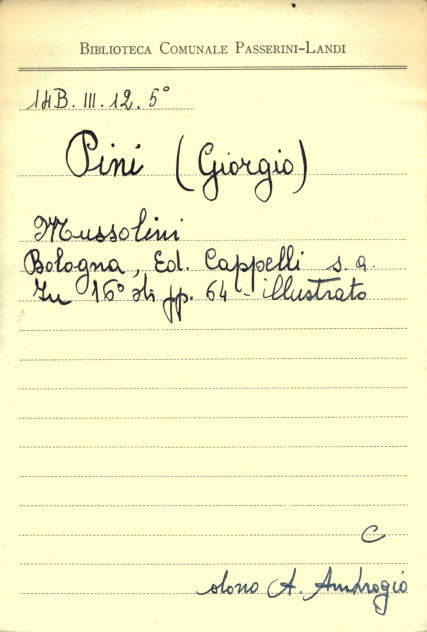 BIBLIOTECA COMUNALE PASSERINI-LANDI
14B. III. 12. 5°
Pini (Giorgio)
Mussolini
Bologna, Ed. Cappelli s. a.
In 16° di pp. 64 - illustrato
C
dono A. Ambrogio